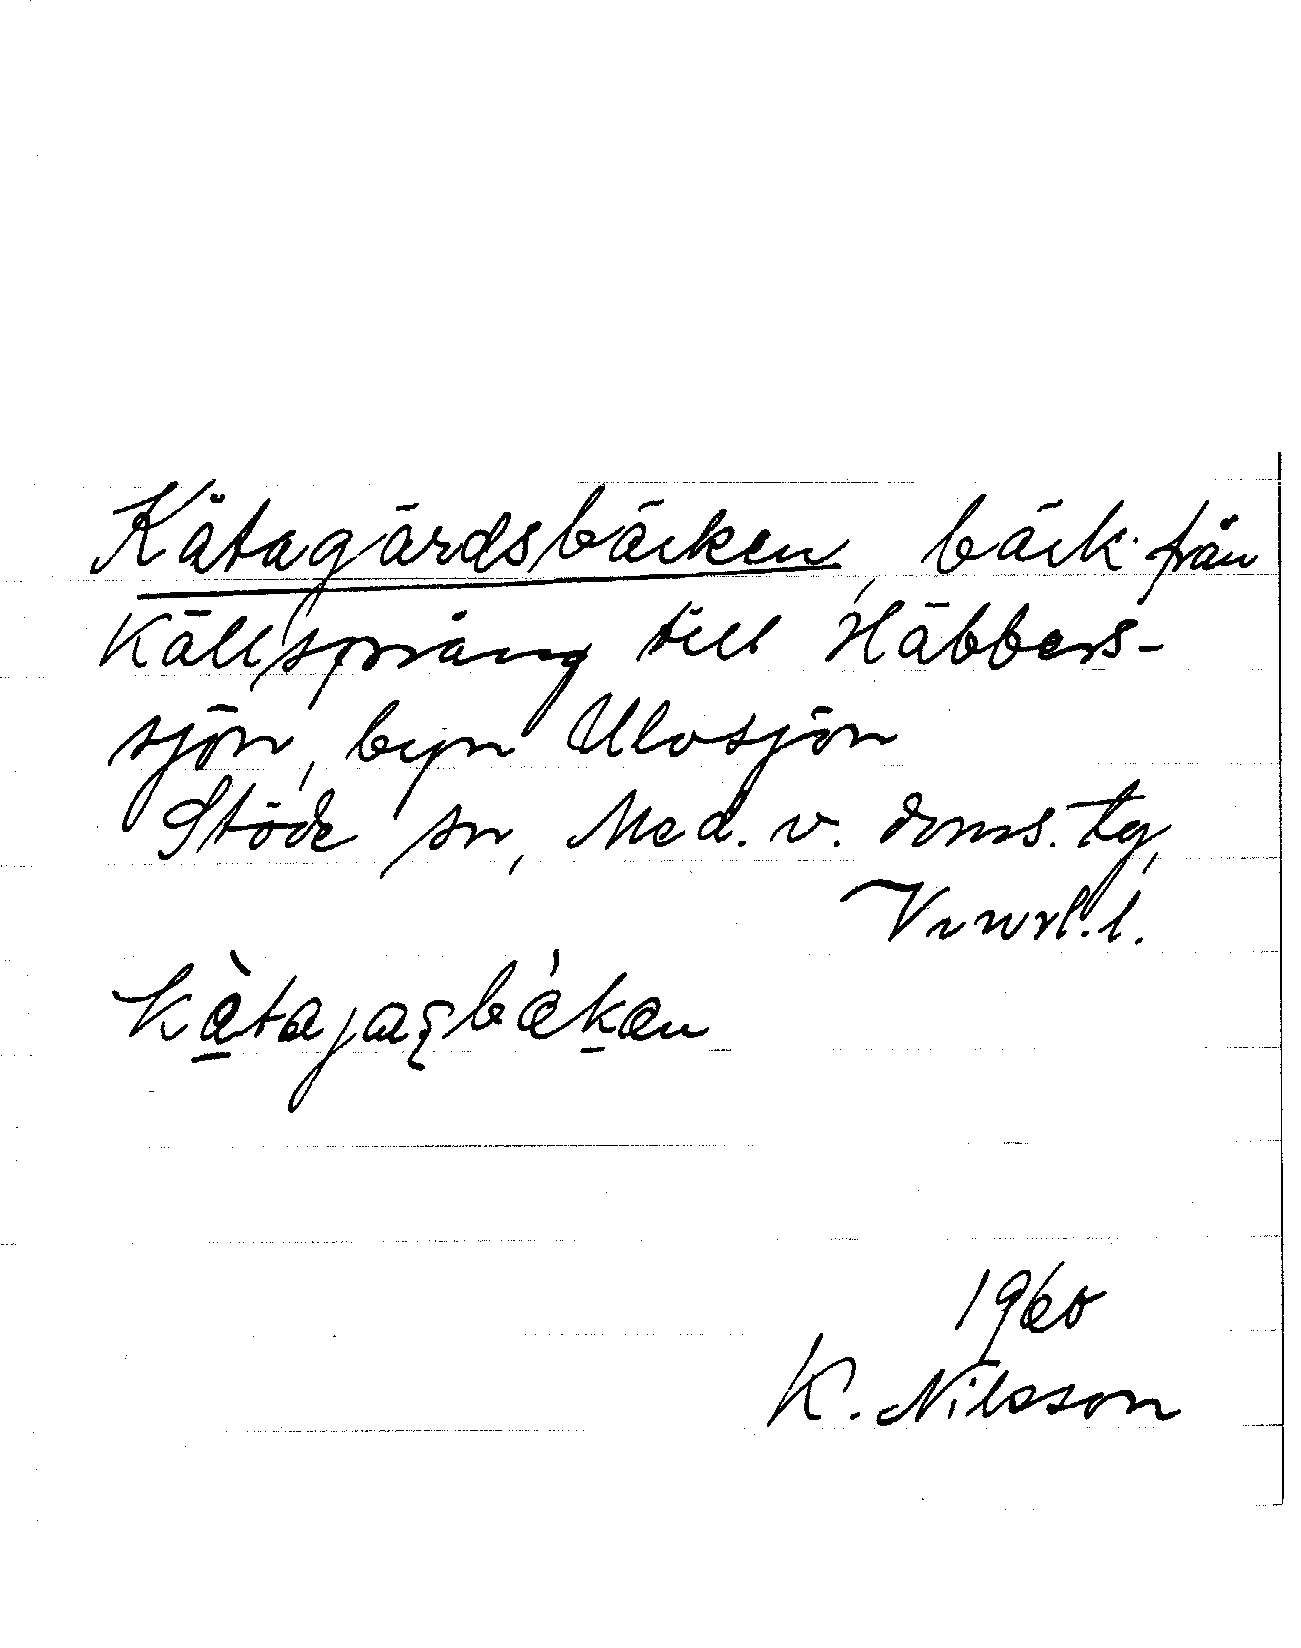 Kåtagårdsbäcken, bäck från
Källsprång till Häbbers-
sjön, byn Ulvsjön
Stöde sn, Med. v. doms. tg,
Vnorl. l.
1960
K. Nilsson